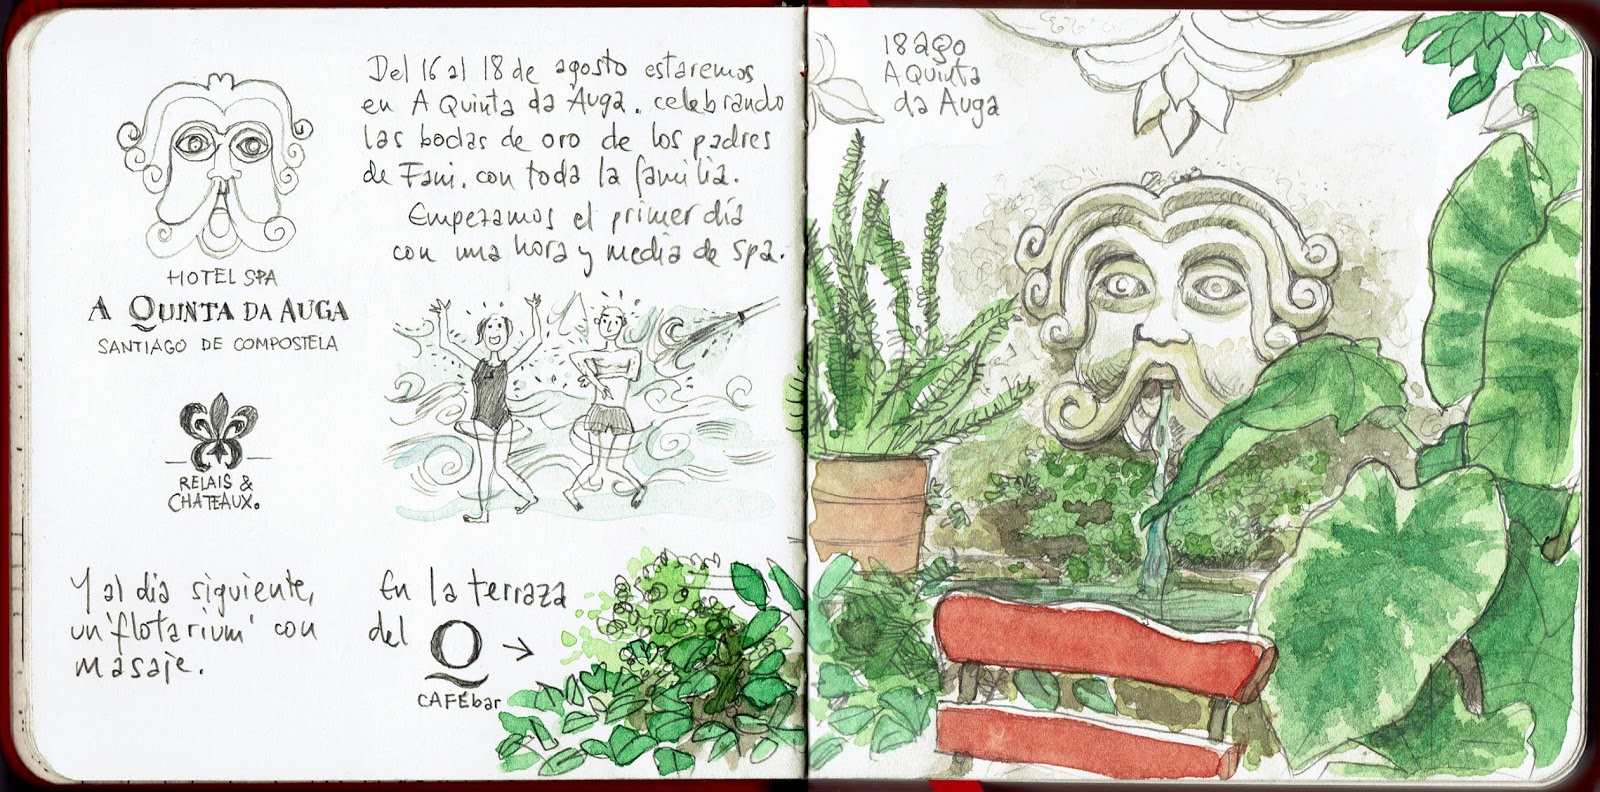 Del 16 al 18 de agosto estaremos
en A Quinta da Auga. celebrando
las bodas de oro de los padres
de Fani. con toda la familia.
Empezamos el primer día
con una hora y media de spa.
HOTEL SPA
A QUINTA DA AUGA
SANTIAGO DE COMPOSTELA
RELAIS &
CHATEAUX.
Y al día siguiente,
un 'flotarium' con
masaje.
En la terraza
del Q →
CAFÉbar
18 ago
A Quinta
da Auga